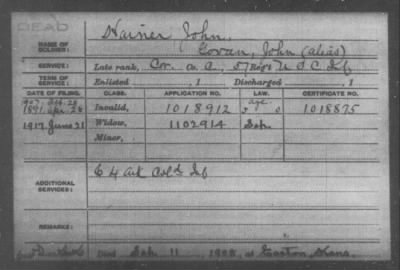 DEAD
NAME OF SOLDIER: Hainer John.
Govan, John (alias)
SERVICE: Late rank, Cor. Co. A, 57 Reg't U S C Inf.
TERM OF SERVICE: Enlisted , 1 Discharged , 1
DATE OF FILING. CLASS. APPLICATION NO. LAW. CERTIFICATE NO.
1891 Apr. 28 Invalid, 1018912 age 1018875
1917 June 21 Widow, 1102914 Sep.
Minor,
ADDITIONAL SERVICES: C 4 Ark Cold Inf
REMARKS:
Died 11 1908, at Easton, Kans.